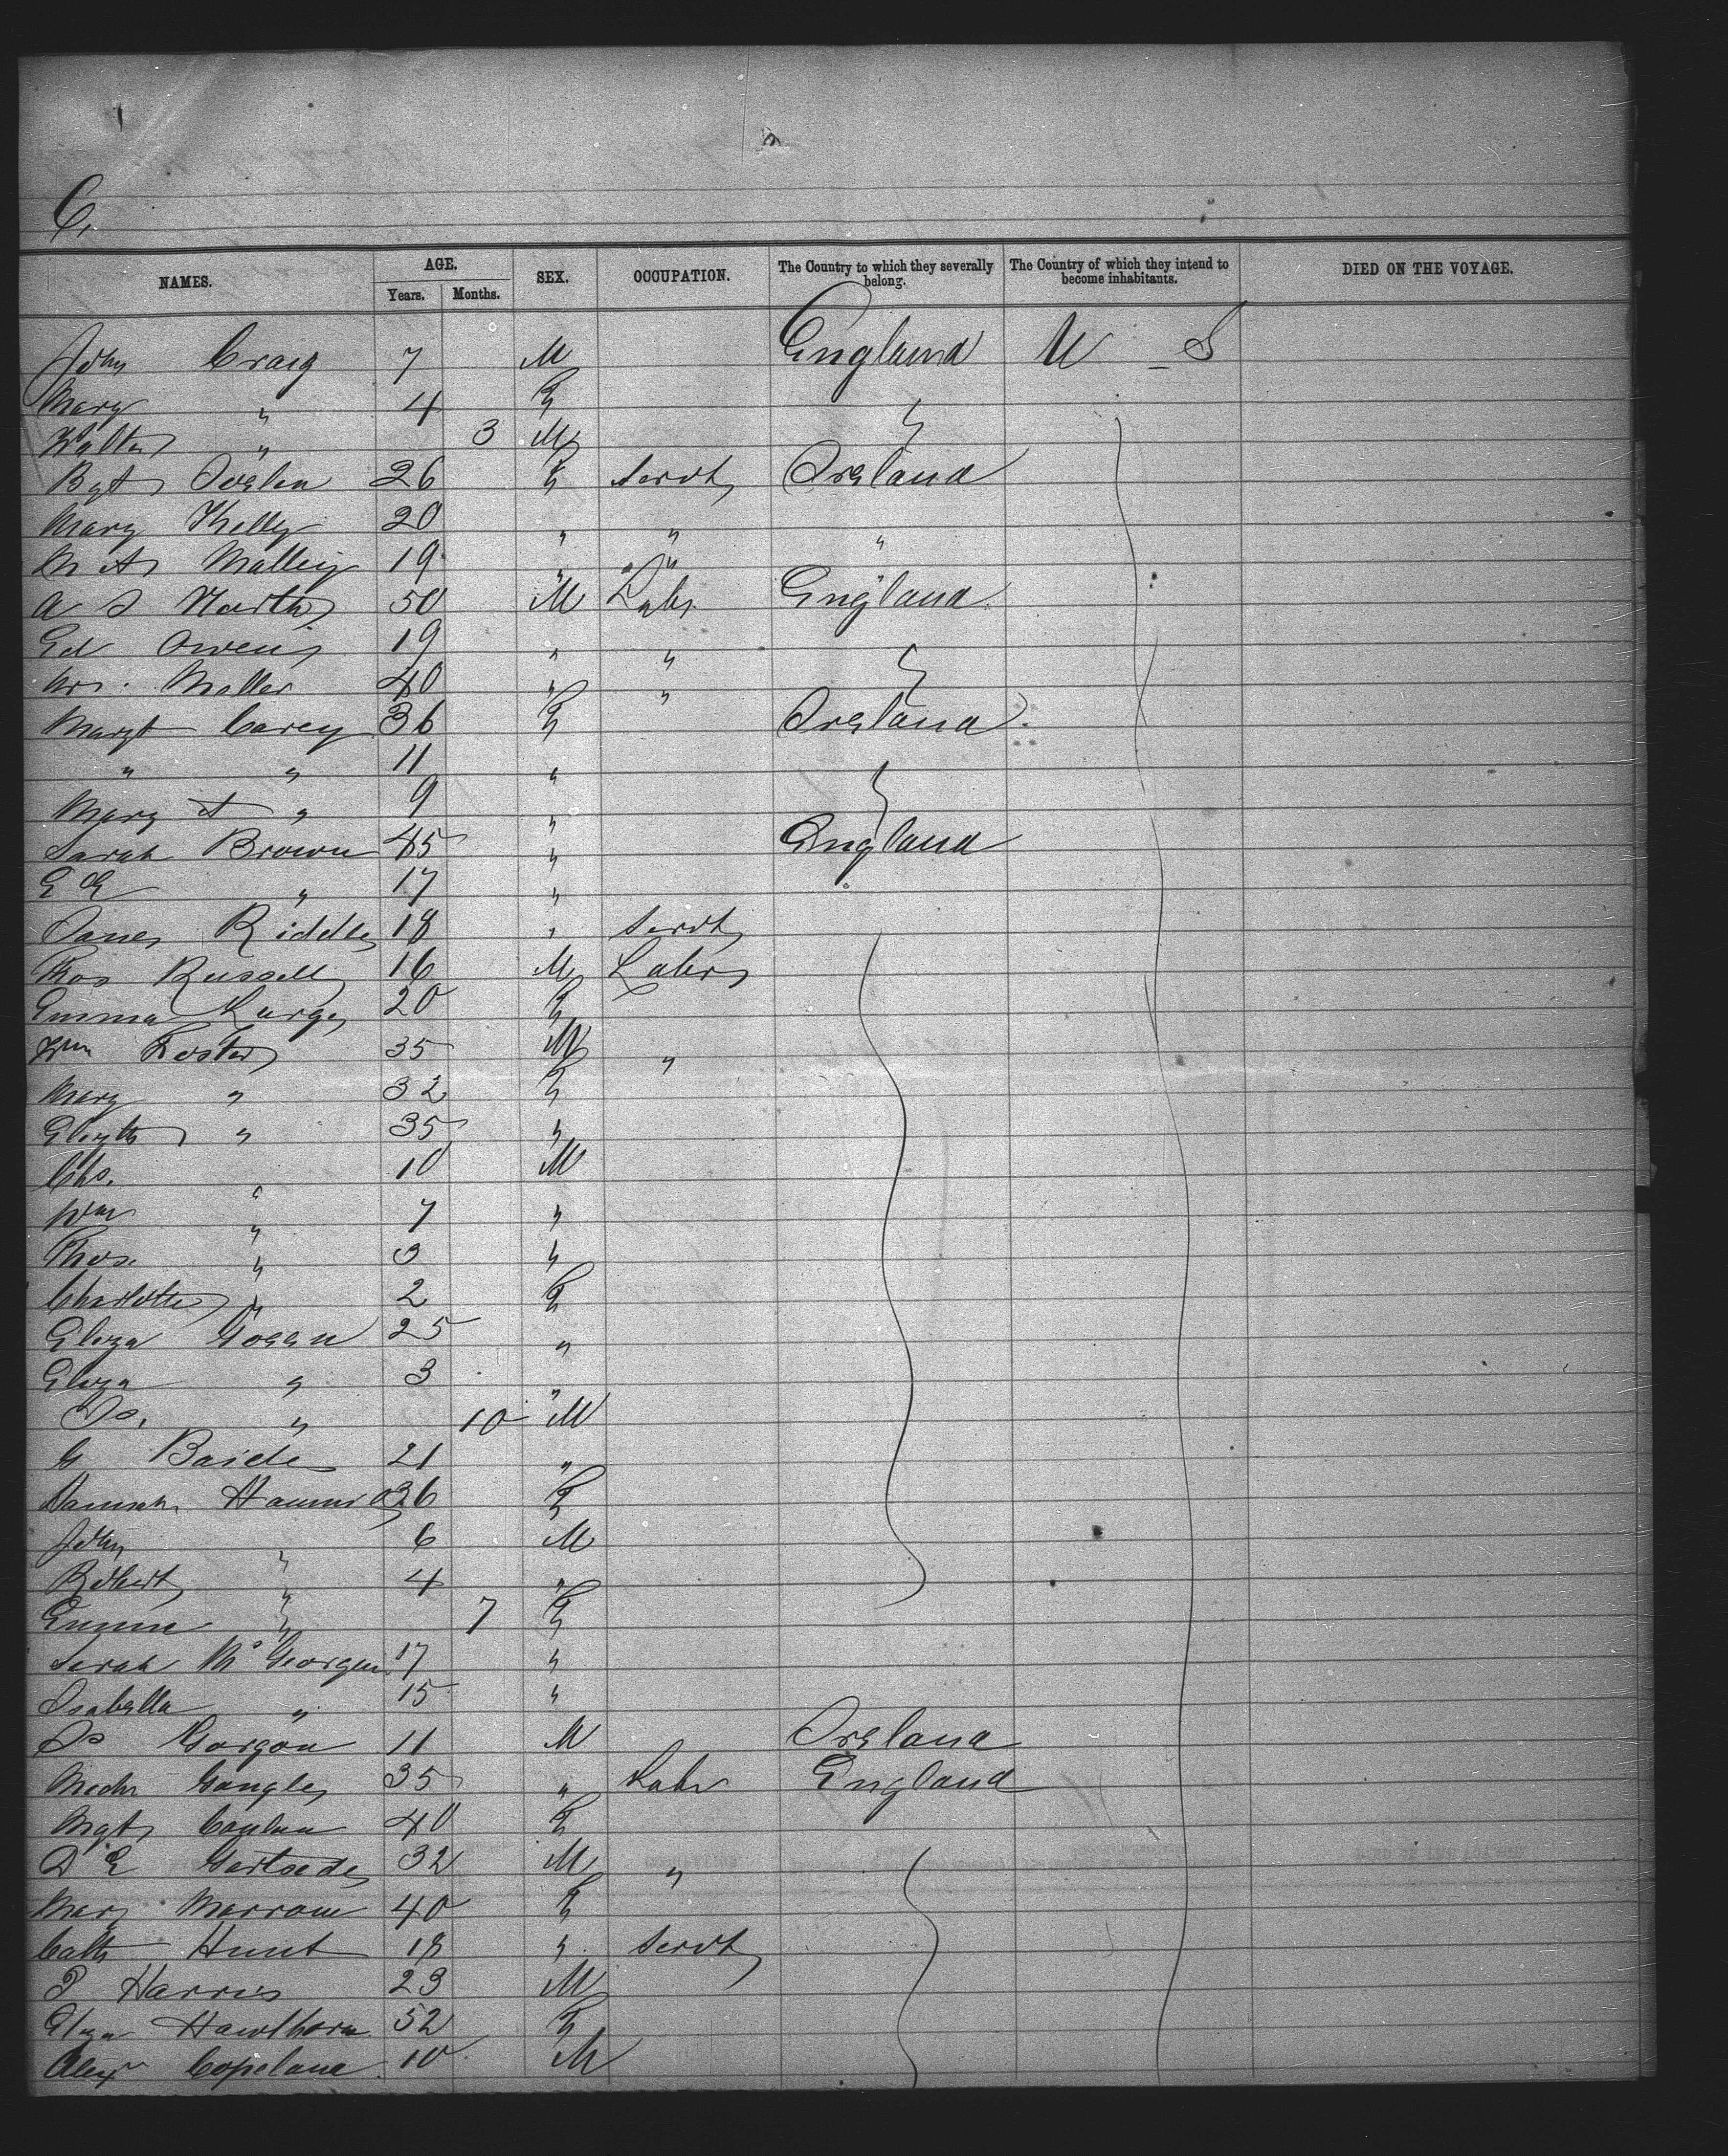 6,
NAMES. AGE. Years. Months. SEX. OCCUPATION. The Country to which they severally belong. The Country of which they intend to become inhabitants. DIED ON THE VOYAGE.
John Craig 7 M England U S
Mary " 4 F
Walter " 3 M
Bgt 26 F Servt Ireland
Mary Kelly 20 " " "
M A Malley 19 " "
A S North 50 M Labr England
Ed Owens 19 " "
40 " "
Margt Carey 36 F Ireland
" " 11 "
Mary A " 9 "
Sarah Brown 45 " England
" 17 "
Riddle 18 " Servt
Thos Russell 16 M Labr
Emma 20 F
Wm Foster 35 M "
Mary " 32 F
Elizth " 35 "
Chs. " 10 M
Wm " 7 "
Thos. " 3 "
Charlotte " 2 F
Eliza 25 "
Eliza " 3 "
Js. " 10 M
G 21 "
Hannah 36 F
John " 6 M
Robert " 4 "
Emma " 7 F
Sarah 17 "
Isabella " 15 "
Js 11 M Ireland
35 " Labr England
Mgt 40 F
D E 32 M "
Mary 40 F
Cath Hunt 18 " Servt
P Harris 23 M
Eliza Hawthorn 52 F
Alexr Copeland 10 M